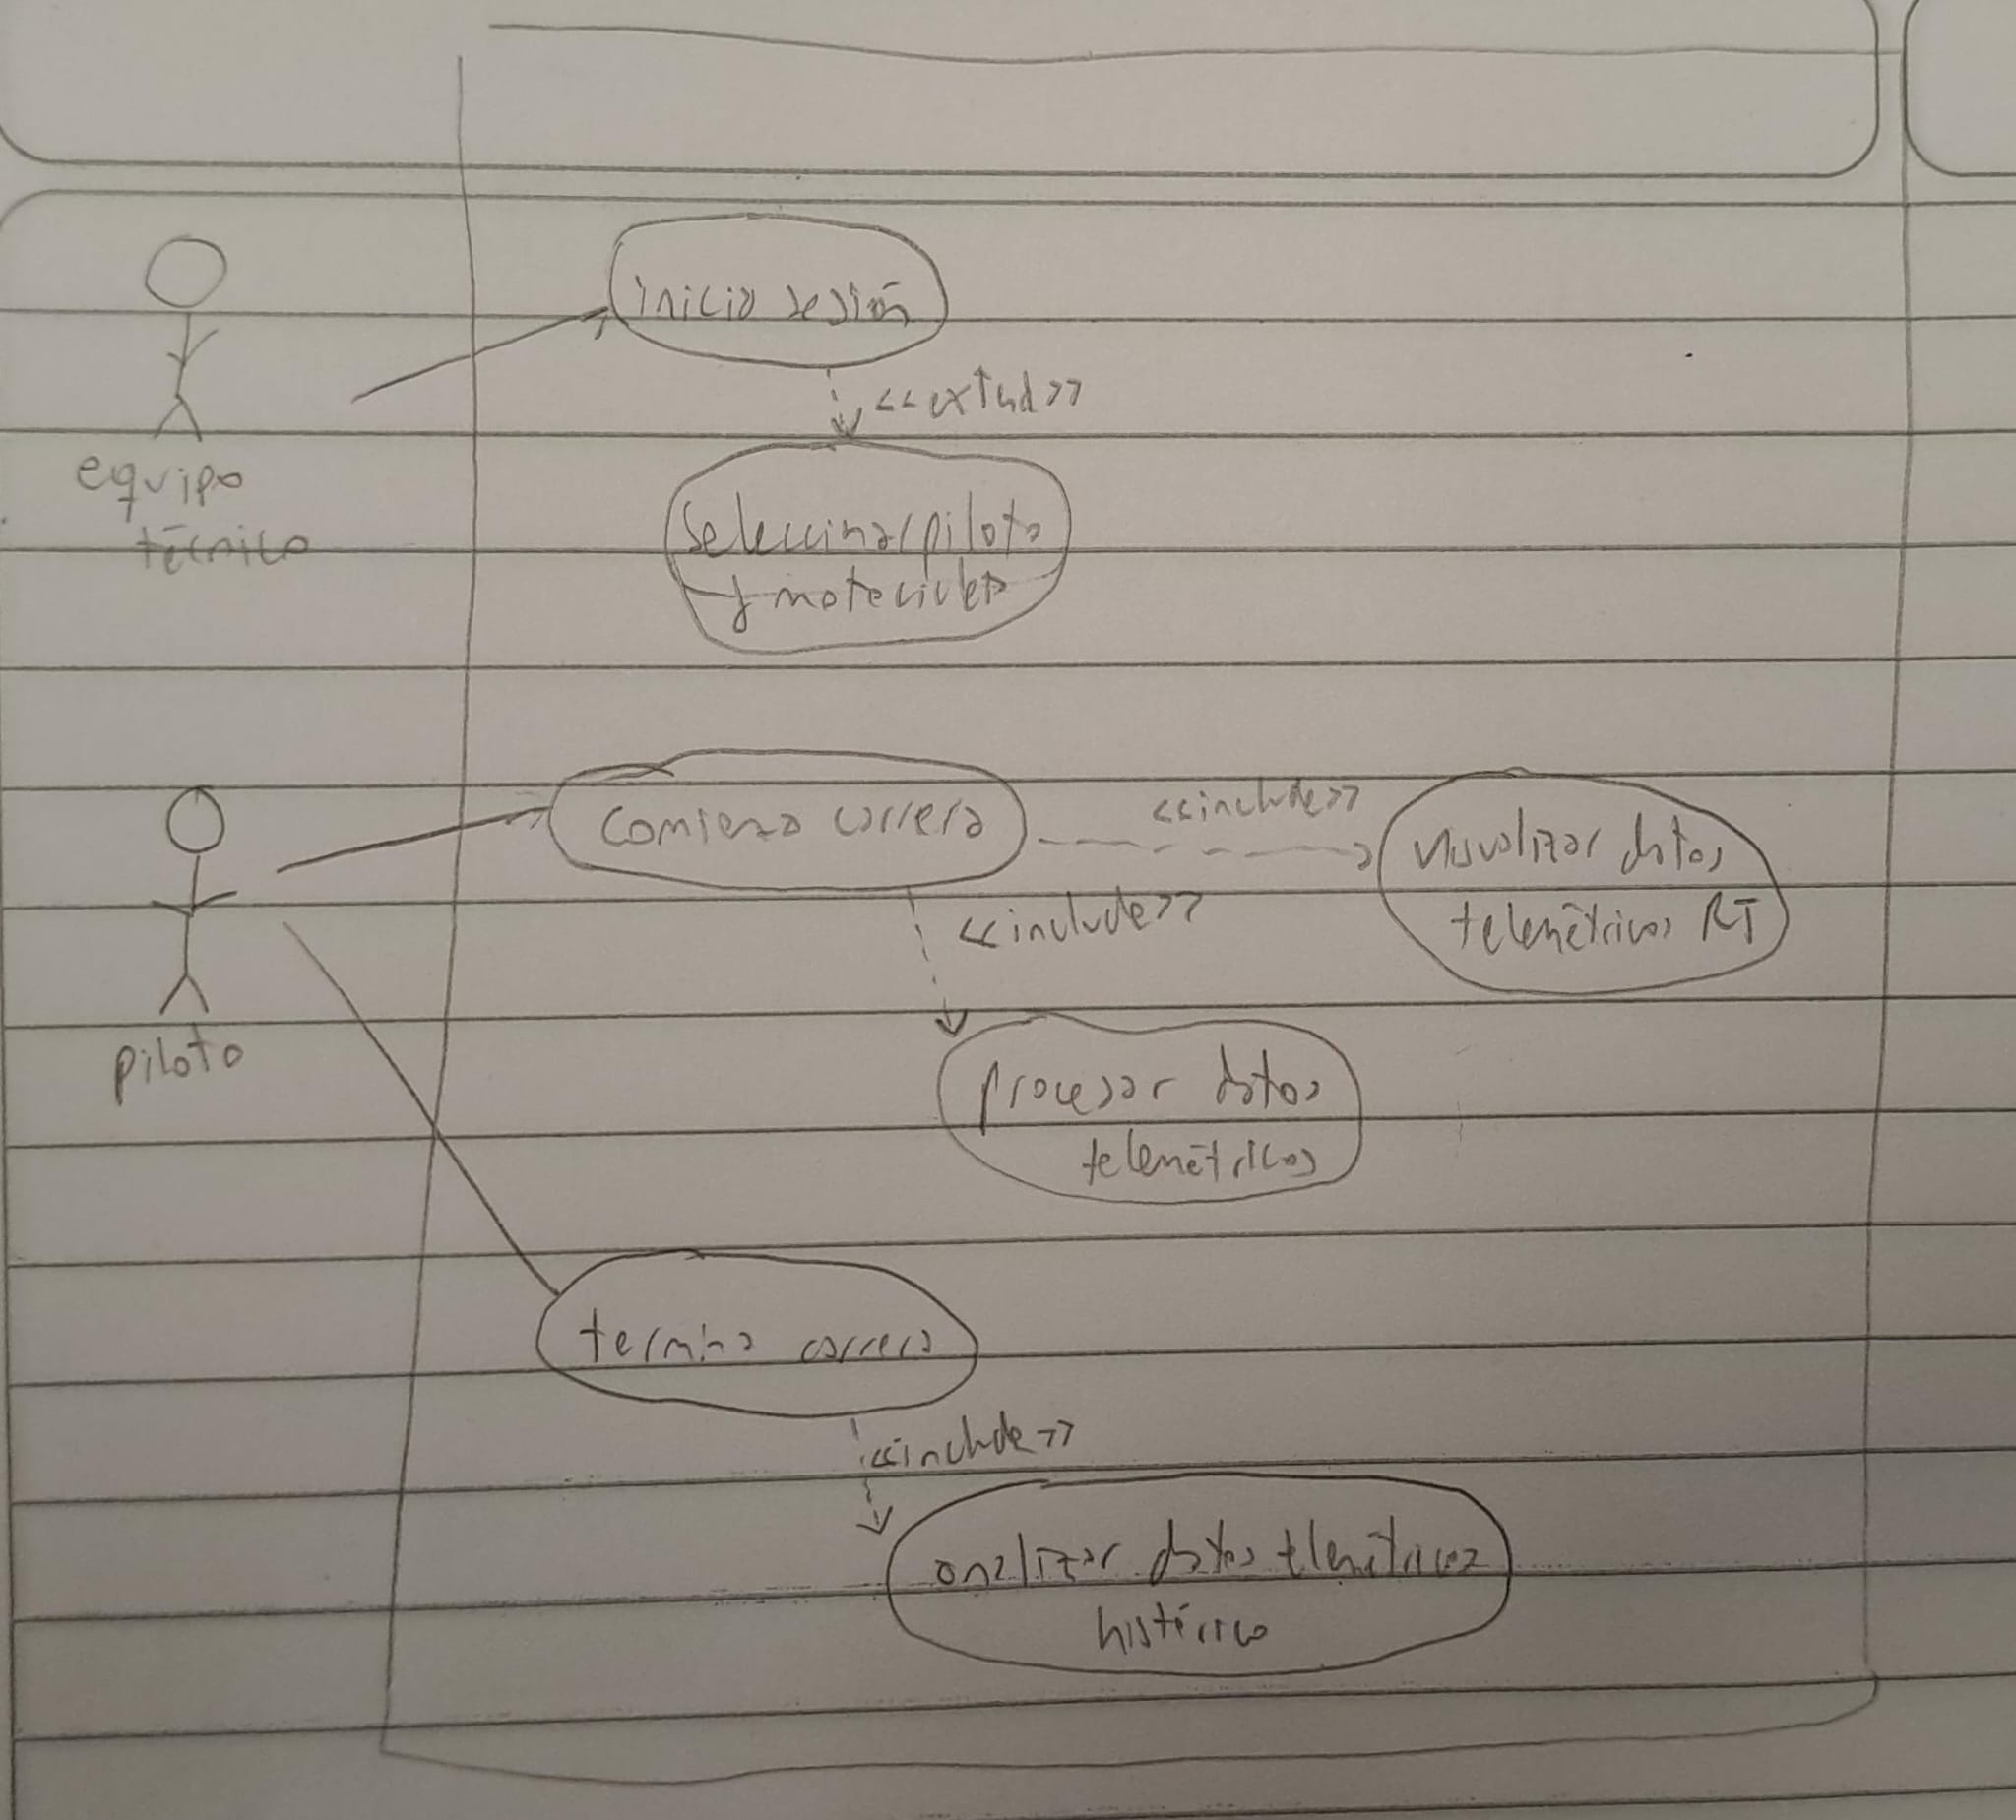 inicio sesión
<<extend>>
equipo
técnico
Seleccionar piloto
y motocicleta
comienza carrera
<<include>>
visualizar datos
telemétricos RT
<<include>>
piloto
procesar datos
telemétricos
termina carrera
<<include>>
analizar datos telemétricos
histórico